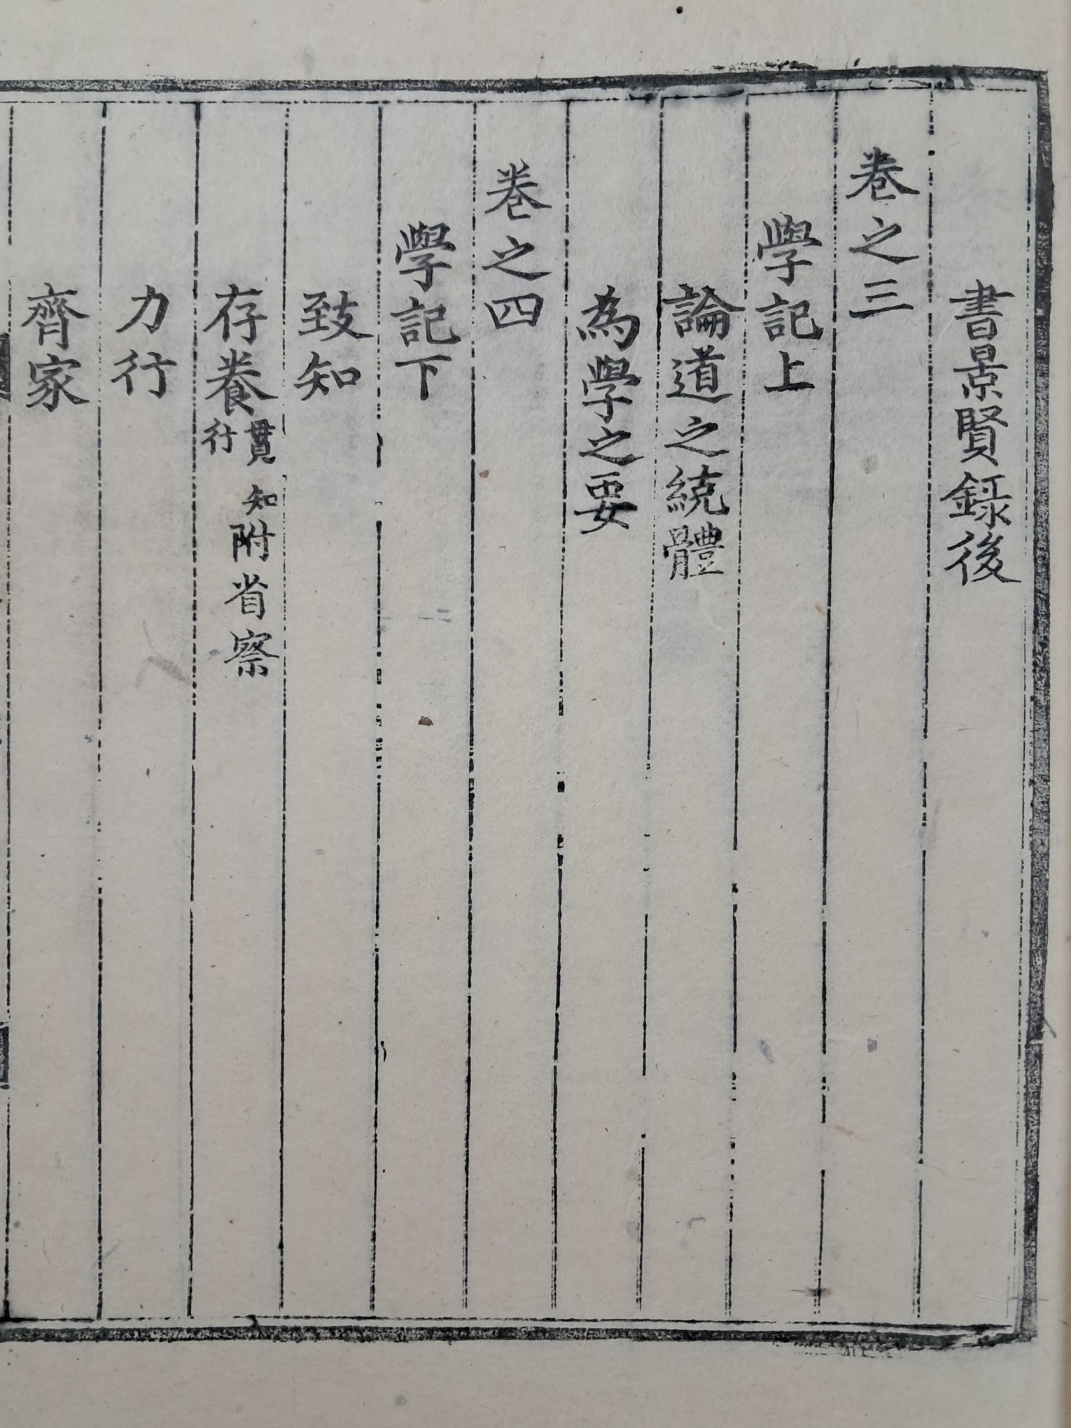 書景賢録後
卷之三
學記上
論道之統體
為學之要
卷之四
學記下
致知
存養貫知行附省察
力行
齊家